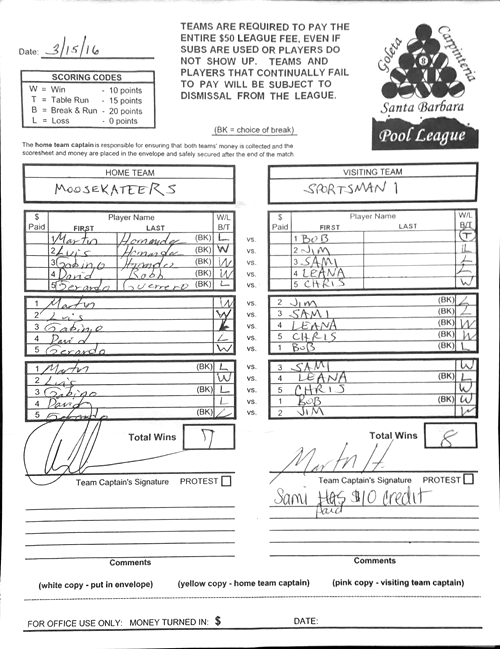 Date: 3/15/16
TEAMS ARE REQUIRED TO PAY THE
ENTIRE $50 LEAGUE FEE, EVEN IF
SUBS ARE USED OR PLAYERS DO
NOT SHOW UP. TEAMS AND
PLAYERS THAT CONTINUALLY FAIL
TO PAY WILL BE SUBJECT TO
DISMISSAL FROM THE LEAGUE.
(BK = choice of break)
Goleta
Carpinteria
8
Santa Barbara
Pool League
SCORING CODES
W = Win - 10 points
T = Table Run - 15 points
B = Break & Run - 20 points
L = Loss - 0 points
The home team captain is responsible for ensuring that both teams' money is collected and the
scoresheet and money are placed in the envelope and safely secured after the end of the match.
HOME TEAM
MOOSEKATEERS
VISITING TEAM
SPORTSMAN 1
$ Paid Player Name FIRST LAST W/L B/T
$ Paid Player Name FIRST LAST W/L B/T
1 Martin Hernandez (BK) L vs. 1 BOB T
2 Luis Hernandez (BK) W vs. 2 JIM L
3 Gabino Hernandez (BK) W vs. 3 SAMI L
4 David (BK) W vs. 4 LEANA L
5 Gerardo Guerrero (BK) L vs. 5 CHRIS W
1 Martin W vs. 2 JIM (BK) L
2 Luis W vs. 3 SAMI (BK) L
3 Gabino L vs. 4 LEANA (BK) W
4 David L vs. 5 CHRIS (BK) W
5 Gerardo W vs. 1 BOB (BK) L
1 Martin (BK) L vs. 3 SAMI W
2 Luis W vs. 4 LEANA (BK) L
3 Gabino (BK) L vs. 5 CHRIS W
4 David L vs. 1 BOB (BK) W
5 Gerardo (BK) L vs. 2 JIM W
Total Wins 7
Total Wins 8
Martin H.
Team Captain's Signature PROTEST
Team Captain's Signature PROTEST
Sami HAS $10 credit
paid
Comments
Comments
(white copy - put in envelope) (yellow copy - home team captain) (pink copy - visiting team captain)
FOR OFFICE USE ONLY: MONEY TURNED IN: $ DATE: